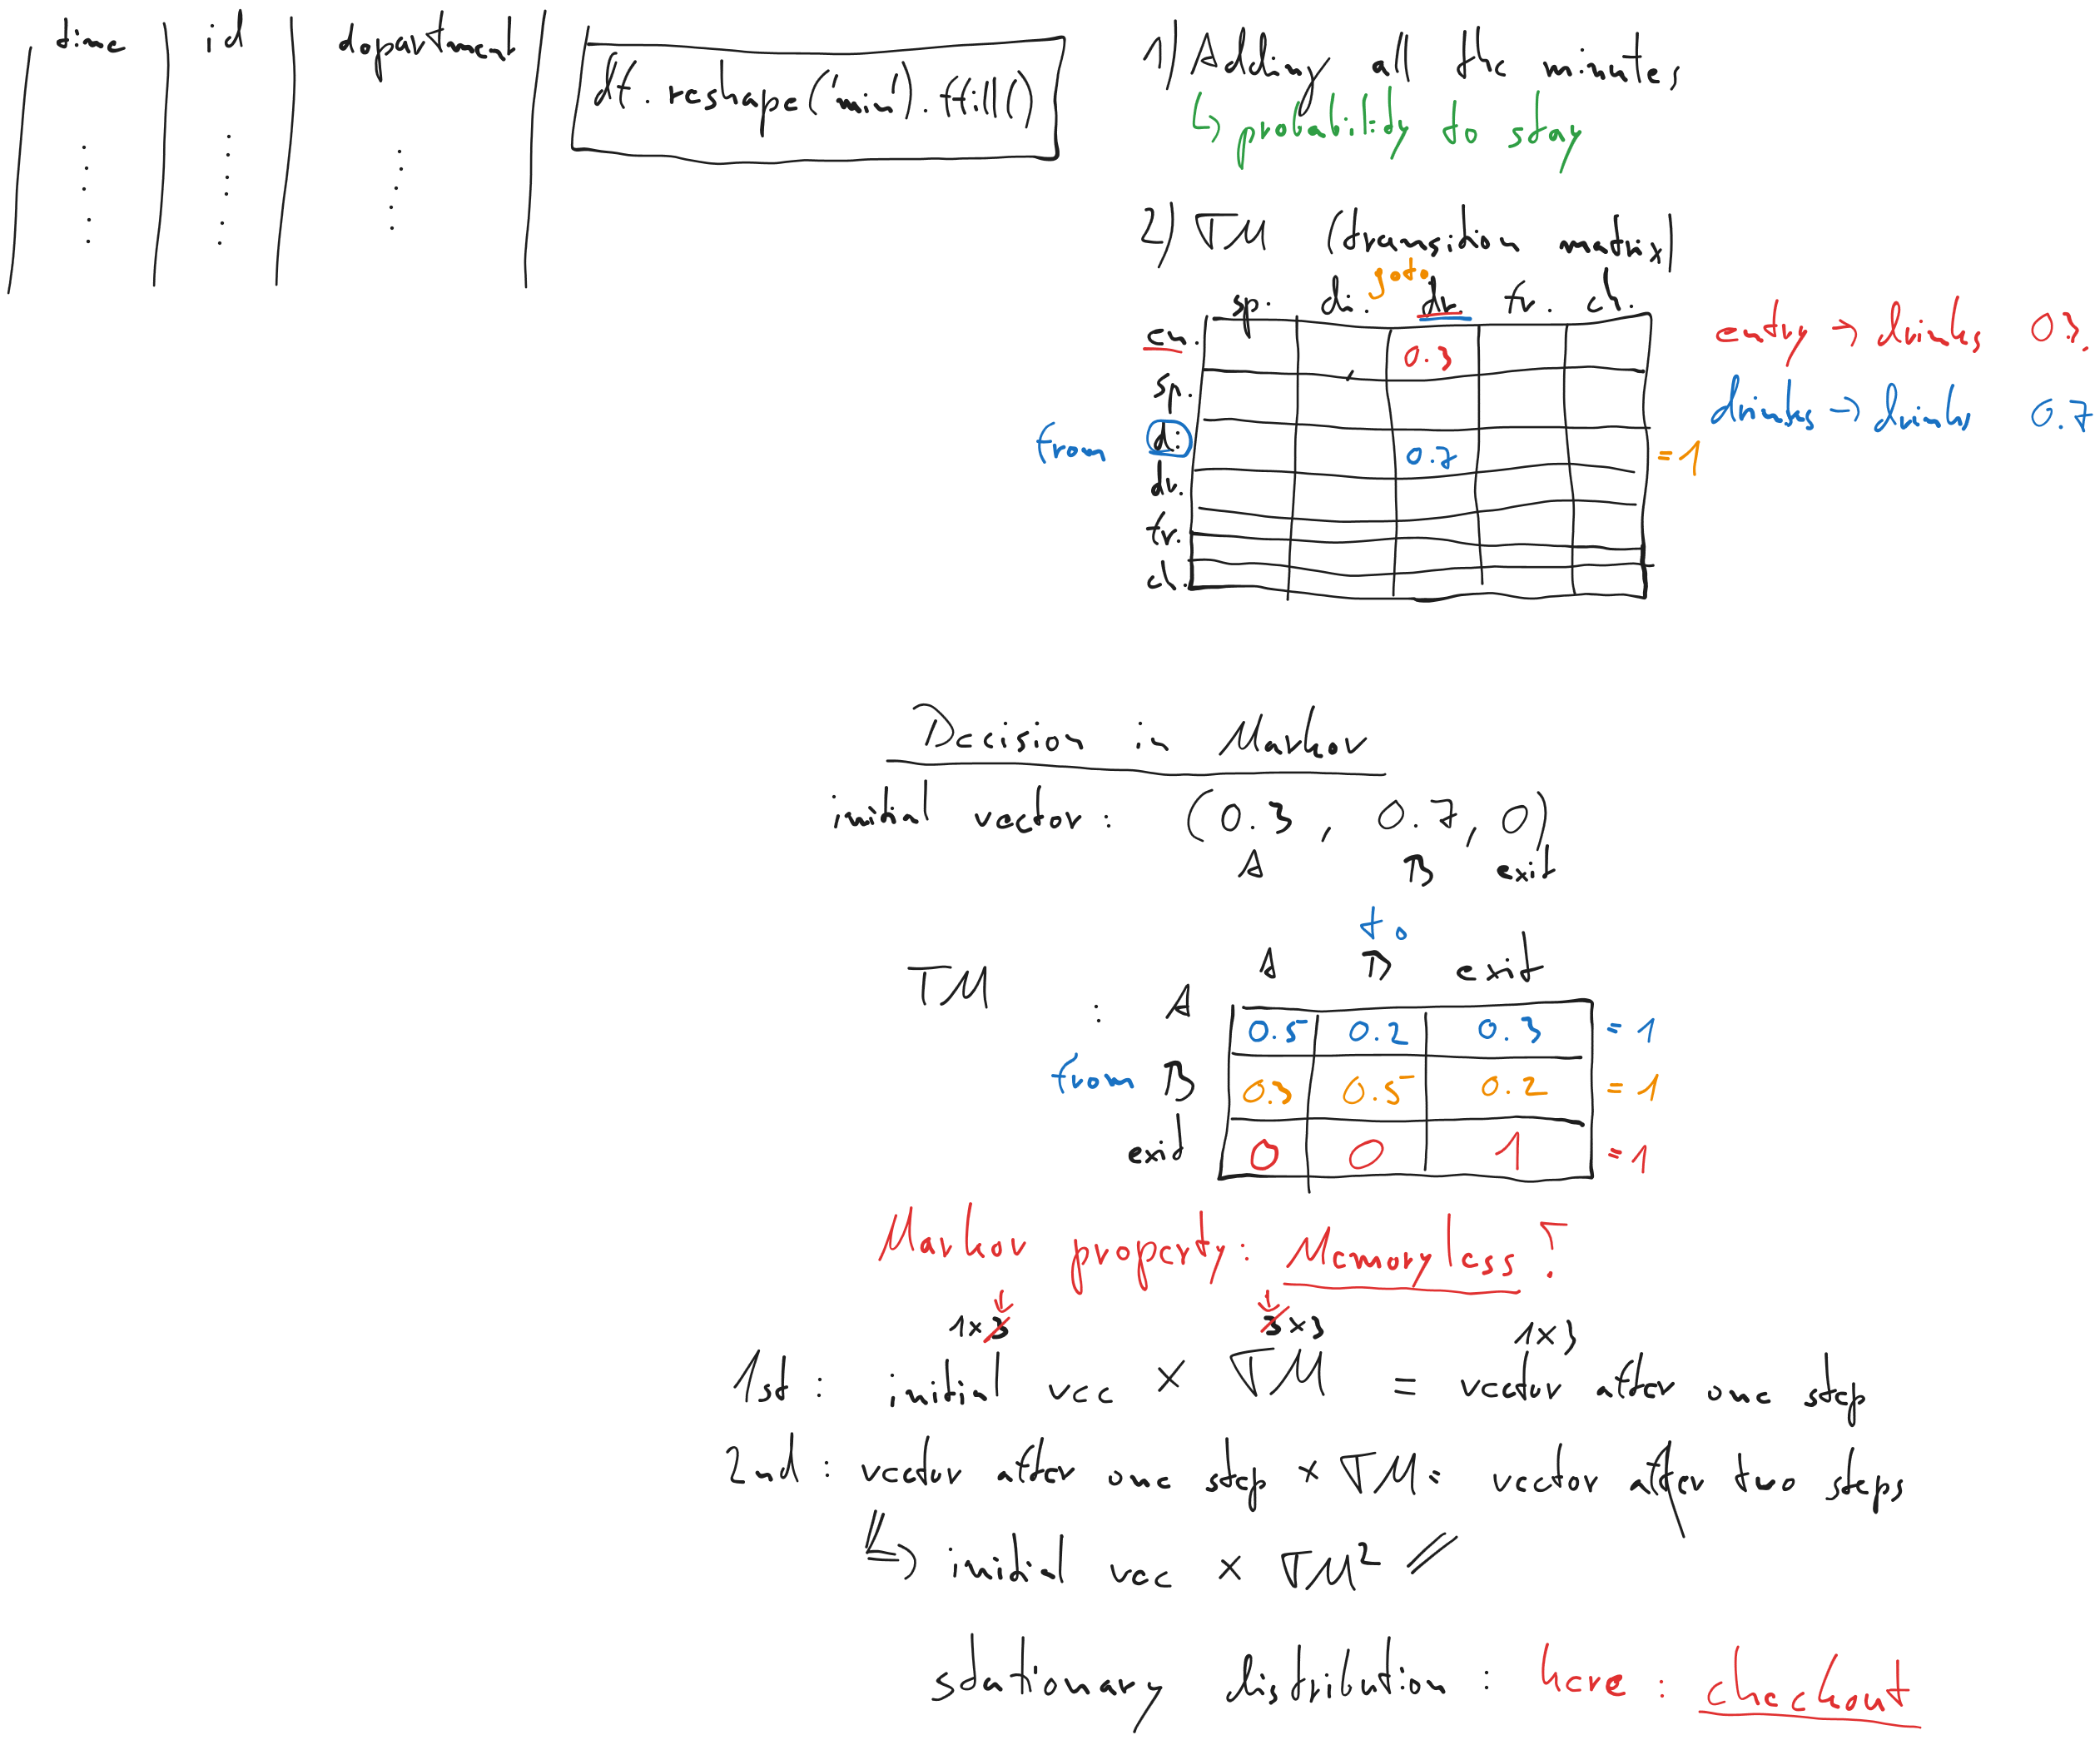 time id department
df.reshape('min').ffill()
1) Adding all the minutes
↳ probability to stay
2) TM (transition matrix)
goto
sp. di. dr. fr. ch.
en. 0.3
sp.
from di. 0.7 = 1
dr.
fr.
ch.
entry → drinks 0.3
drinks → drinks 0.7
Decision in Markov
initial vector : (0.3, 0.7, 0)
A B exit
to
A B exit
TM : A 0.5 0.2 0.3 = 1
from B 0.3 0.5 0.2 = 1
exit 0 0 1 = 1
Markov property: Memoryless!
1×3 3×3 1×3
1st : initial vec × TM = vector after one step
2nd : vector after one step × TM = vector after two steps
↳ initial vec × TM² //
stationary distribution : here : checkout